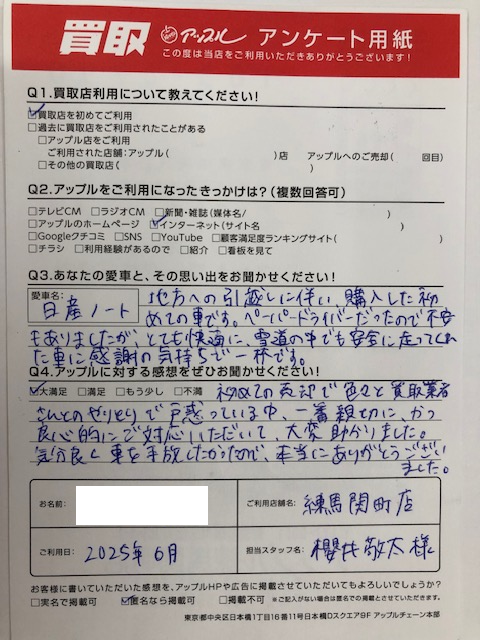 買取 アップル アンケート用紙
この度は当店をご利用いただきありがとうございます！
Q1.買取店利用について教えてください！
☑買取店を初めてご利用
□過去に買取店をご利用されたことがある
□アップル店をご利用
ご利用された店舗：アップル（ ）店 アップルへのご売却（ 回目）
□その他の買取店（ ）
Q2.アップルをご利用になったきっかけは？（複数回答可）
□テレビCM □ラジオCM □新聞・雑誌（媒体名/ ）
□アップルのホームページ ☑インターネット（サイト名 ）
□Googleクチコミ □SNS □YouTube □顧客満足度ランキングサイト（ ）
□チラシ □利用経験があるので □紹介 □看板を見て
Q3.あなたの愛車と、その思い出をお聞かせください！
愛車名： 日産 ノート 地方への引越しに伴い、購入した初
めての車です。ペーパードライバーだったので不安
もありましたが、とても快適に、雪道の中でも安全に走ってくれ
た車に感謝の気持ちで一杯です。
Q4.アップルに対する感想をぜひお聞かせください！
☑大満足 □満足 □もう少し □不満 初めての売却で色々と買取業者
さんとのやりとりで戸惑っている中、一番親切に、かつ
良心的にご対応いただいて、大変助かりました。
気分良く車を手放したかったので、本当にありがとうござい
ました。
お名前： ご利用店舗名： 練馬関町店
ご利用日： 2025年6月 担当スタッフ名： 櫻井敬太様
お客様に書いていただいた感想を、アップルHPや広告に掲載させていただいてもよろしいでしょうか？
□実名で掲載可 ☑匿名なら掲載可 □掲載不可 ※ご記入がない場合は匿名での掲載とさせていただきます。
東京都中央区日本橋1丁目16番11号日本橋Dスクエア9F アップルチェーン本部